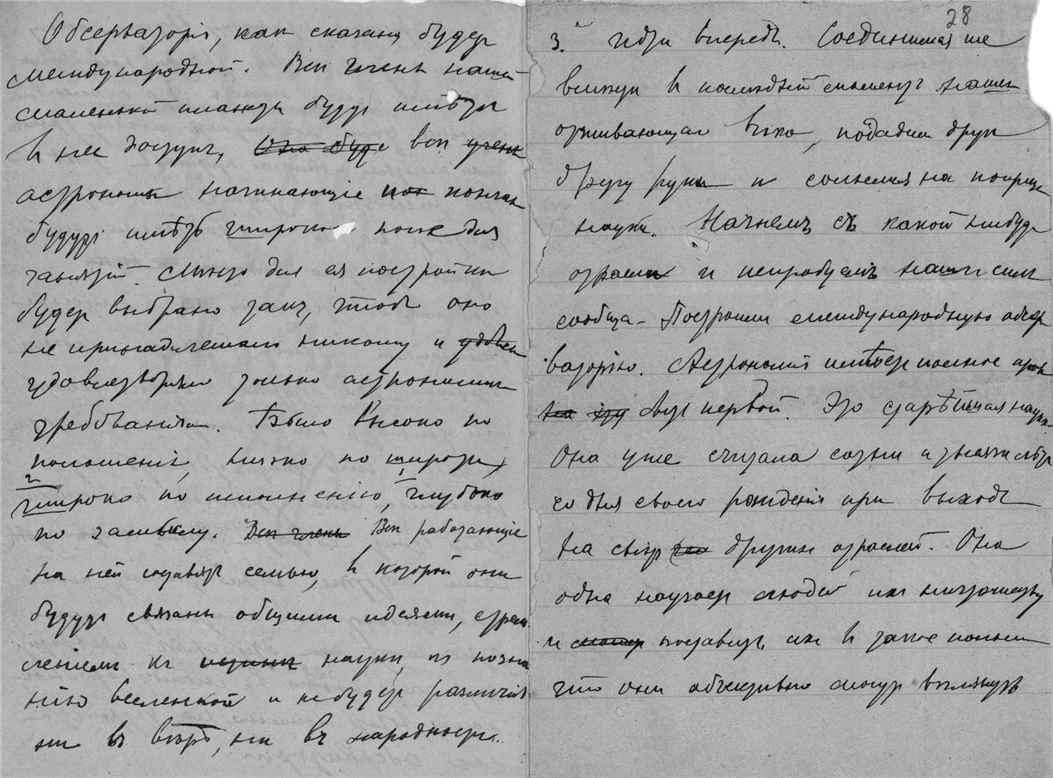 Обсерваторія, как сказано будет
международной. Все члены нашей
маленькой планеты будут имѣть
в нее доступ, Она буде все учен
астрономы начинающіе кончая
будут имѣть широкое поле для
занятій. Мѣсто для ея постройки
будет выбрано так, чтоб оно
не принадлежало никому и удовл
удовлетворяло только астрономич
требованіям. Было высоко по
положенію, низко по широтѣ,
и
широко по исполненію, глубоко
по замыслу. Все члены Все работающіе
на ней составят семью, в которой они
будут связаны общими идеями, стрем
леніем к науки, по позна
нію вселенной и не будет различія
ни въ вѣрѣ, ни въ народности.
28
3. идти впередъ. Соединимся же
вмѣстѣ в послѣдній моментъ нашего
отживающаго вѣка, подадим друг
другу руки и сольемся на поприщѣ
науки. Начнемъ съ какой нибудь
отрасли и попробуемъ наши силы
сообща - Построим международную обсер
ваторію. Астрономія имѣет полное право
на эту быть первой. Это старѣйшая наука.
Она уже считала сотни и тысячи лѣт
со дня своего рожденія при выходѣ
на свѣт других отраслей. Она
одна научает людей их ничтожеству
и может поставить их в такое положеніе
что они объективно могут взглянуть